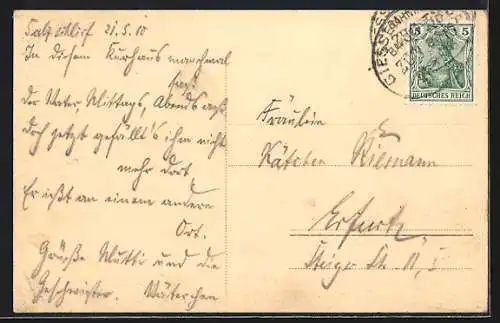 Salzschlirf 21.5.10
In diesem Kurhaus manchmal
saß
der Vater, Mittags, Abends aß.
Doch jetzt gefällt's ihm nicht
mehr dort
Er ißt an einem andern
Ort.
Grüße Mutti und die
Geschwister. Väterchen
Fräulein
Kätchen Niemann
Erfurt
Steiger Str. 11, I
GIESSEN
BAHNPOST
5 5
DEUTSCHES REICH